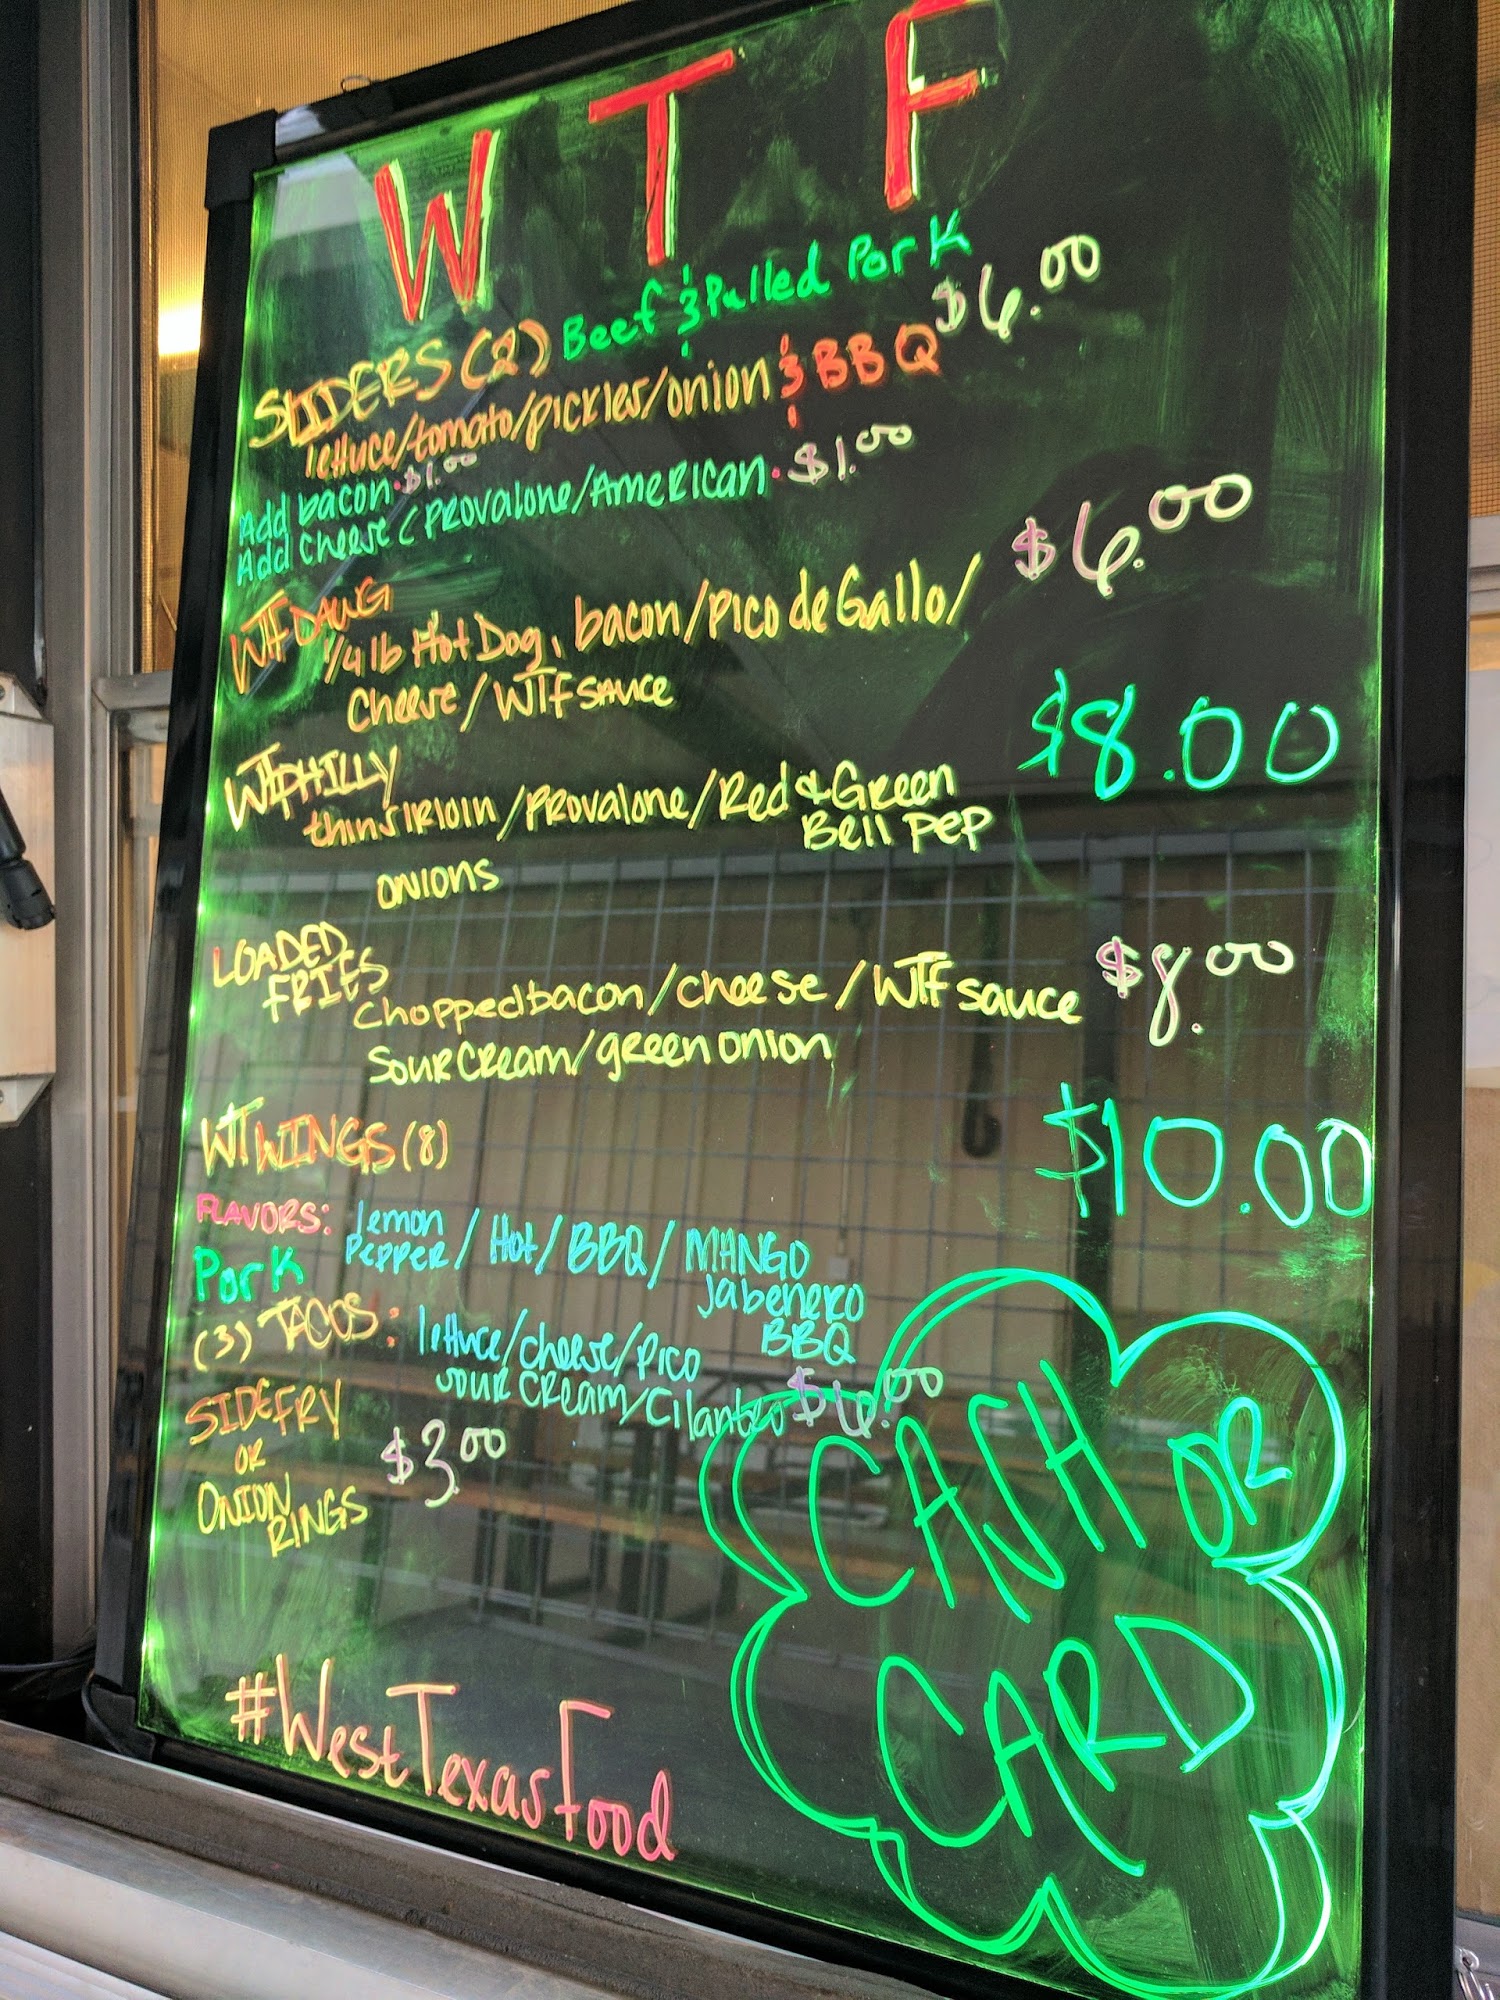 W T F
SLIDERS (2) Beef & Pulled Pork $6.00
lettuce/tomato/pickles/onion & BBQ
Add bacon · $1.00
Add Cheese (Provalone/American · $1.00
WTF DAWG $6.00
1/4 lb Hot Dog, bacon/Pico de Gallo/
Cheese/WTF sauce
WTPHILLY $8.00
thin sirloin/Provalone/Red & Green
Bell pep
onions
LOADED
FRIES
Chopped bacon/cheese/WTF sauce $8.00
Sour Cream/green onion
WTWINGS (8) $10.00
FLAVORS: lemon
Pepper/Hot/BBQ/MANGO
Jabenero
BBQ
Pork
(3) TACOS: lettuce/cheese/Pico
sour cream/Cilantro $6.00
SIDE FRY
OR $3.00
ONION
RINGS
CASH OR
CARD
#WestTexasFood